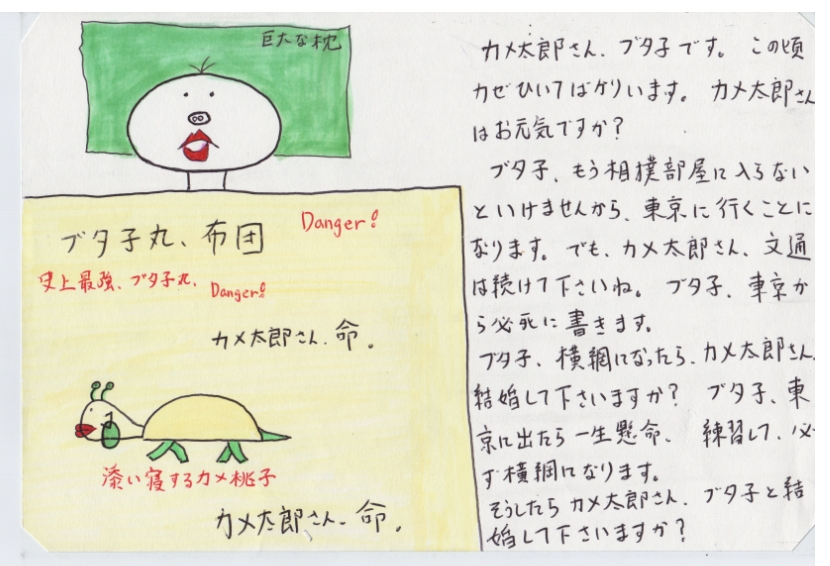 巨大な枕
ブタ子丸、布団
Danger!
史上最強、ブタ子丸、
Danger!
カメ太郎さん、命。
添い寝するカメ桃子
カメ太郎さん、命。
カメ太郎さん、ブタ子です。この頃
カゼひいてばかりいます。カメ太郎さん
はお元気ですか?
ブタ子、もう相撲部屋に入らない
といけませんから、東京に行くことに
なります。でも、カメ太郎さん、文通
は続けて下さいね。ブタ子、東京か
ら必死に書きます。
ブタ子、横綱になったら、カメ太郎さん、
結婚して下さいますか? ブタ子、東
京に出たら一生懸命、練習して、必
ず横綱になります。
そうしたらカメ太郎さん、ブタ子と結
婚して下さいますか?